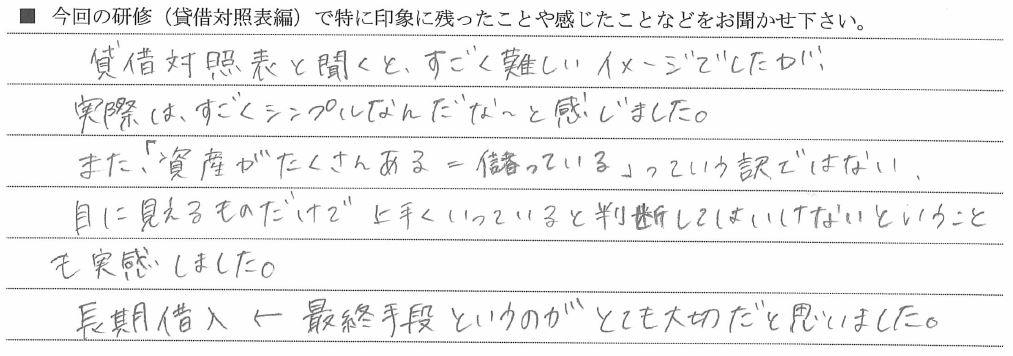 ■ 今回の研修（貸借対照表編）で特に印象に残ったことや感じたことなどをお聞かせ下さい。
貸借対照表と聞くと、すごく難しいイメージでしたが、
実際は、すごくシンプルなんだな〜と感じました。
また、「資産がたくさんある＝儲っている」っていう訳ではない、
目に見えるものだけで上手くいっていると判断してはいけないということ
も実感しました。
長期借入 ← 最終手段というのがとても大切だと思いました。